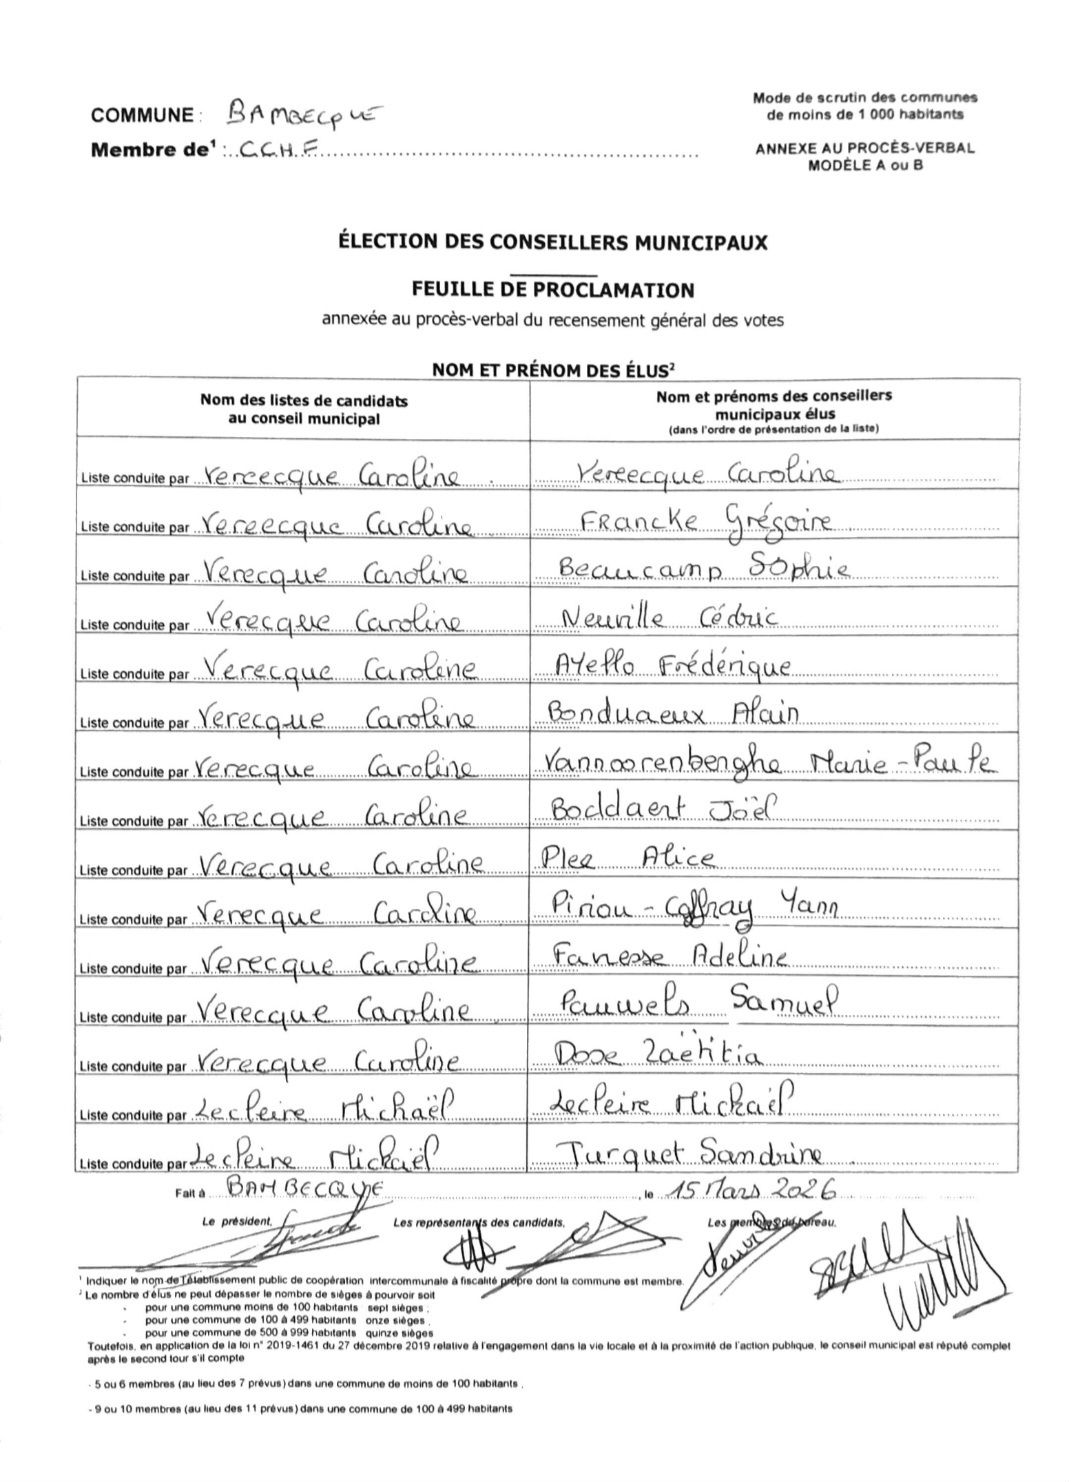 COMMUNE : BAMBECQUE
Mode de scrutin des communes
de moins de 1 000 habitants
Membre de¹ : C.C.H.F
ANNEXE AU PROCÈS-VERBAL
MODÈLE A ou B
ÉLECTION DES CONSEILLERS MUNICIPAUX
FEUILLE DE PROCLAMATION
annexée au procès-verbal du recensement général des votes
NOM ET PRÉNOM DES ÉLUS²
Nom des listes de candidats
au conseil municipal
Nom et prénoms des conseillers
municipaux élus
(dans l'ordre de présentation de la liste)
Liste conduite par Vereecque Caroline Vereecque Caroline
Liste conduite par Vereecque Caroline Francke Grégoire
Liste conduite par Verecque Caroline Beaucamp Sophie
Liste conduite par Verecque Caroline Neuville Cédric
Liste conduite par Verecque Caroline Ayello Frédérique
Liste conduite par Verecque Caroline Bonduaeux Alain
Liste conduite par Verecque Caroline Vannoorenberghe Marie-Paule
Liste conduite par Verecque Caroline Boddaert Joël
Liste conduite par Verecque Caroline Plee Alice
Liste conduite par Verecque Caroline Piriou-Coffray Yann
Liste conduite par Verecque Caroline Fanesse Adeline
Liste conduite par Verecque Caroline Pauwels Samuel
Liste conduite par Verecque Caroline Dose Laëtitia
Liste conduite par Lecleire Michaël Lecleire Mickaël
Liste conduite par Lecleire Mickaël Turquet Sandrine
Fait à BAMBECQUE, le 15 Mars 2026
Le président, Les représentants des candidats, Les membres du bureau,
¹ Indiquer le nom de l'établissement public de coopération intercommunale à fiscalité propre dont la commune est membre.
² Le nombre d'élus ne peut dépasser le nombre de sièges à pourvoir soit
- pour une commune moins de 100 habitants sept sièges,
- pour une commune de 100 à 499 habitants onze sièges,
- pour une commune de 500 à 999 habitants quinze sièges
Toutefois, en application de la loi n° 2019-1461 du 27 décembre 2019 relative à l'engagement dans la vie locale et à la proximité de l'action publique, le conseil municipal est réputé complet
après le second tour s'il compte
- 5 ou 6 membres (au lieu des 7 prévus) dans une commune de moins de 100 habitants,
- 9 ou 10 membres (au lieu des 11 prévus) dans une commune de 100 à 499 habitants